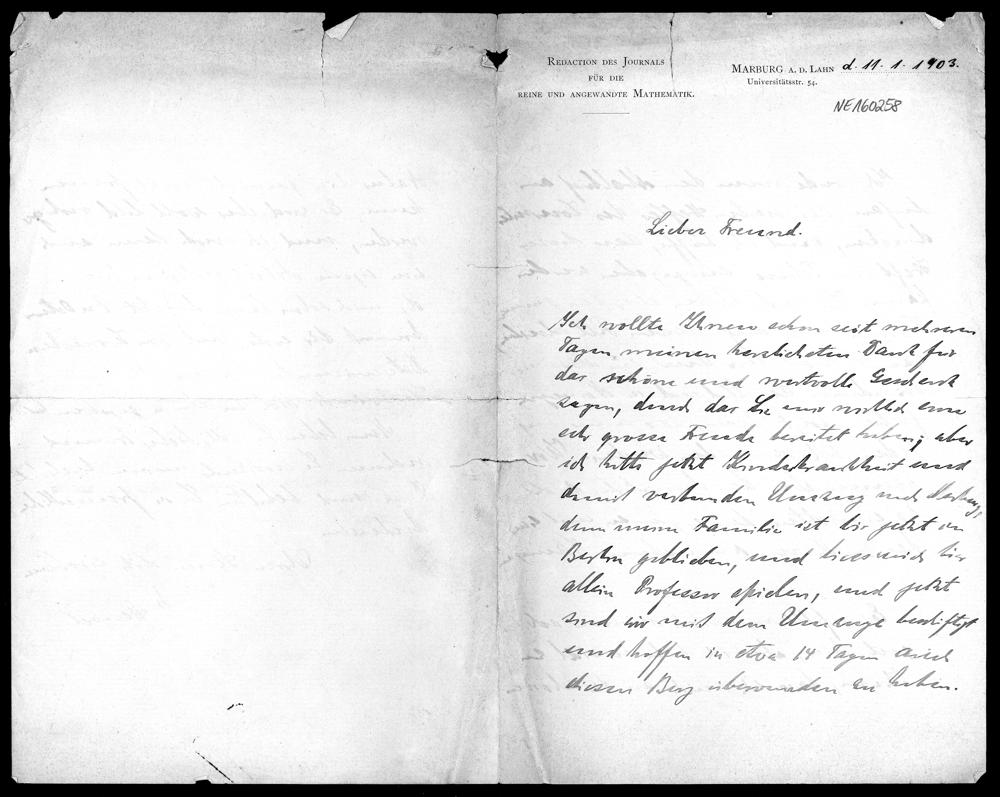 REDACTION DES JOURNALS
FÜR DIE
REINE UND ANGEWANDTE MATHEMATIK.
MARBURG A. D. LAHN d. 11. 1. 1903.
Universitätsstr. 54.
NE160258
Lieber Freund.
Ich wollte Ihnen schon seit mehreren
Tagen meinen herzlichsten Dank für
das schöne und wertvolle Geschenk
sagen, durch das Sie mir wirklich eine
sehr grosse Freude bereitet haben; aber
ich hatte jetzt Kinderkrankheit und
damit verbunden Umzug nach Marburg,
denn meine Familie ist bis jetzt in
Berlin geblieben, und liess mich hier
allein Professor spielen, und jetzt
sind wir mit dem Umzuge beschäftigt
und hoffen in etwa 14 Tagen auch
diesen Berg überwunden zu haben.